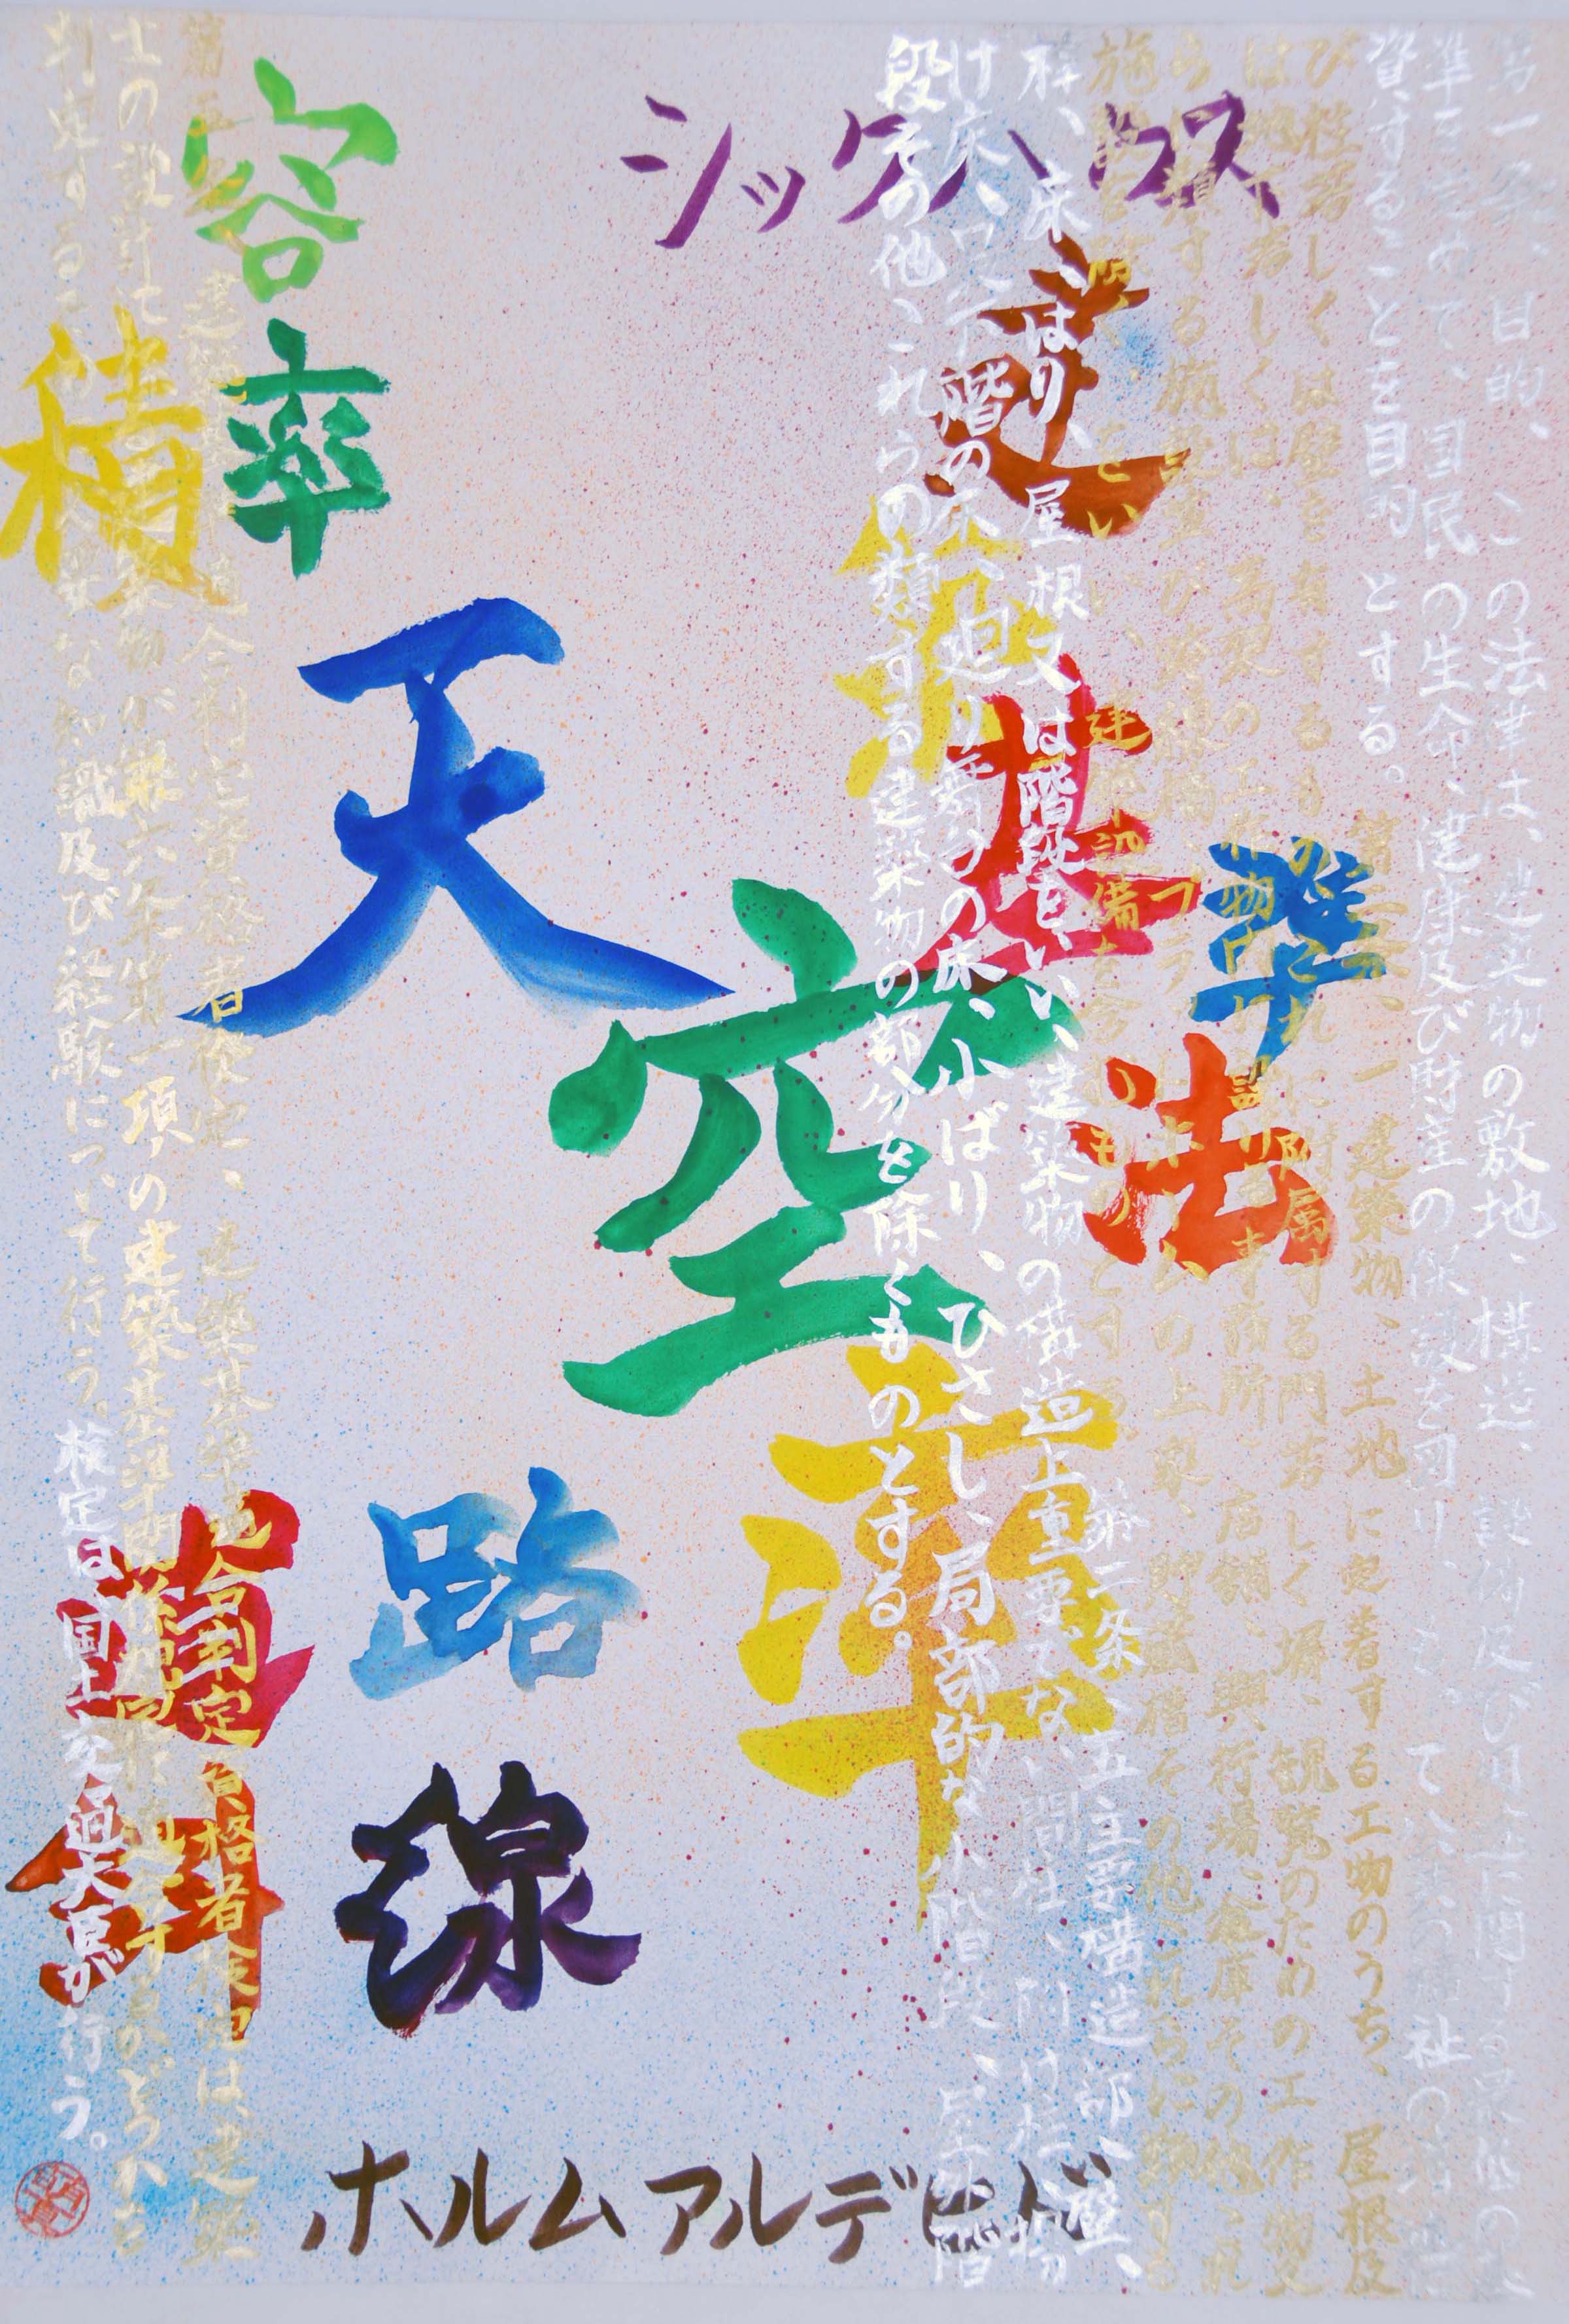 シックハウス
建築基準法
容積率
天空率
道路斜線
ホルムアルデヒド
第一条、目的、この法律は、建築物の敷地、構造、設備及び用途に関する最低の基
準を定めて、国民の生命、健康及び財産の保護を図り、もって公共の福祉の増進に
資することを目的とする。
第二条、一、建築物、土地に定着する工物のうち、屋根及
び柱若しくは壁を有するもの これに附属する門若しくは塀、観覧のための工作物又
は地下若しくは、高架の工作物内に設ける事務所、店舗、興行場、倉庫その他これ
らに類する施設並び跨線橋、プラットホームの上家、貯蔵槽その他これらに類する
施設を除く をいい、建築設備を含むものとする。
第二条、五、主要構造部、壁、
柱、床、はり、屋根又は階段をいい、建築物の構造上重要でない間 柱、付け柱、揚
げ床、最下階の床、廻り舞台の床、小ばり、ひさし、局部的な小階段、屋外階
段その他、これらの類する建築物の部分を除くものとする。
第五条、建築基準適合判定資格者検定、建築基準適合判定資格者検定は、建築
士の設計に係る建築物が第六条第一項の建築基準関係規定に適合するかどうかを
判定するために必要な知識及び経験について行う。検定は、国土交通大臣が行う。